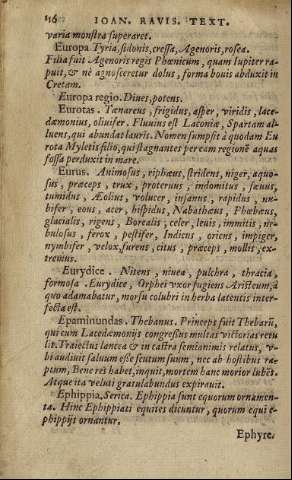 116 IOAN. RAVIS. TEXT.
varia monstra superaret.
Europa Tyria, sidonis, cressa, Agenoris, rosea.
Filia fuit Agenoris regis Phœnicum, quam Iupiter ra-
puit, & nè agnosceretur dolus, forma bouis abduxit in
Cretam.
Europa regio. Diues, potens.
Eurotas. Tænareus, frigidus, asper, viridis, lace-
dæmonius, oliuifer. Fluuius est Laconiæ, Spartam al-
luens, qui abundat lauris. Nomen sumpsit à quodam Eu
rota Myletis filio, qui stagnantes per eam regionē aquas
fossa perduxit in mare.
Eurus. Animosus, riphæus, stridens, niger, aquo-
sus, præceps, trux, proteruus, indomitus, sæuus,
tumidus, Æolius, volucer, insanus, rapidus, nu-
bifer, eous, acer, hispidus, Nabathæus, Phœbæus,
glacialis, rigens, Borealis, celer, leuis, immitis, tur-
bulosus, ferox, pestifer, Indicus, oriens, impiger,
nymbifer, velox, furens, citus, præceps, mollis, ex-
tremus.
Eurydice. Nitens, niuea, pulchra, thracia,
formosa. Eurydice, Orphei vxor fugiens Aristæum, à
quo adamabatur, morsu colubri in herba latentis inter-
fecta est.
Epaminundas. Thebanus. Princeps fuit Thebarū,
qui cum Lacedæmonijs congressus multas victorias retu
lit. Traiectus lancea & in castra semianimis relatus, v-
bi audiuit saluum esse scutum suum, nec ab hostibus ra-
ptum, Bene res habet, inquit, mortem hanc morior lubēs.
Atque ita veluti gratulabundus expirauit.
Ephippia. Serica. Ephippia sunt equorum ornamen-
ta. Hinc Ephippiati equites dicuntur, quorum equi e-
phippijs ornantur.
Ephyre.